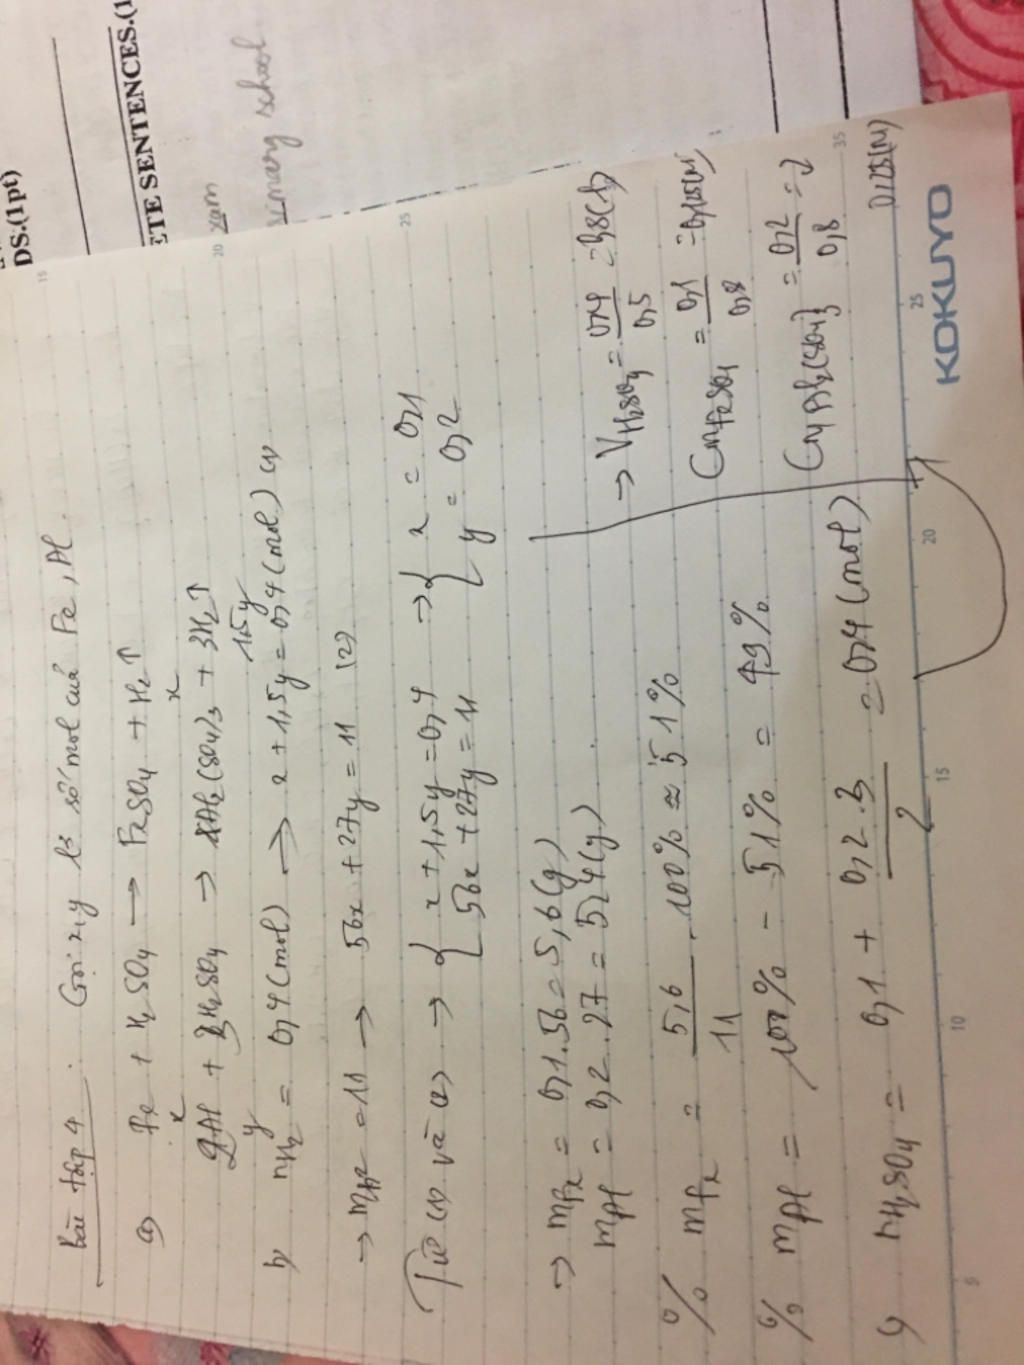 Bài tập 4: Gọi x, y là số mol của Fe, Al.
a) Fe + H₂SO₄ → FeSO₄ + H₂↑
x x
2Al + 3H₂SO₄ → Al₂(SO₄)₃ + 3H₂↑
y 1,5y
b) nH₂ = 0,4 (mol) → x + 1,5y = 0,4 (mol) (1)
→ mhh = 11 → 56x + 27y = 11 (2)
Từ (1) và (2) → { x + 1,5y = 0,4 → { x = 0,1
56x + 27y = 11 y = 0,2
→ mFe = 0,1.56 = 5,6 (g)
mAl = 0,2.27 = 5,4 (g)
% mFe = 5,6 / 11 . 100% ≈ 51%
% mAl = 100% - 51% = 49%
c) nH₂SO₄ = 0,1 + 0,2.3 / 2 = 0,4 (mol)
→ VH₂SO₄ = 0,4 / 0,5 = 0,8 (l)
CMFeSO₄ = 0,1 / 0,8 = 0,125 (M)
CM Al₂(SO₄)₃ = 0,2 / 0,8 : 2
0,125 (M)
KOKUYO
5
10
15
20
25
15
20
25
35
DS.(1pt)
ETE SENTENCES.(1
xam
rimary school